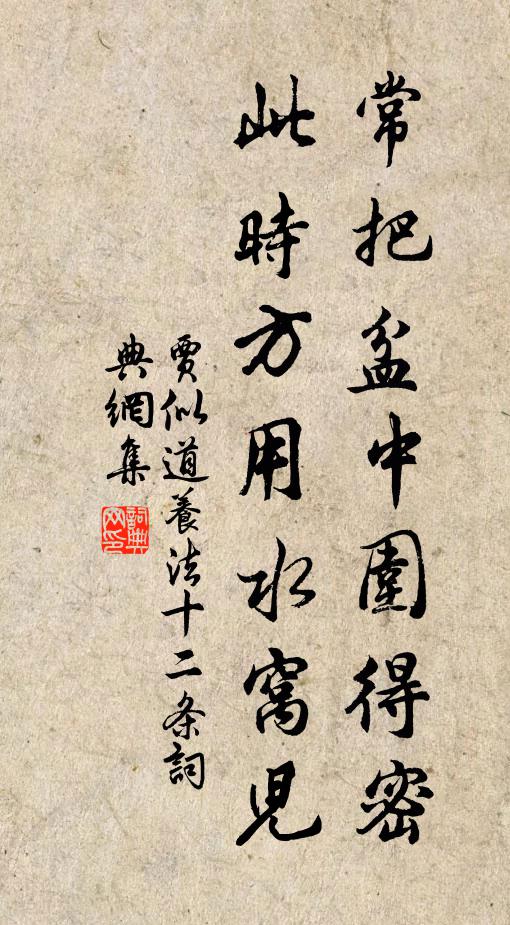 常把盆中圍得密
此時方用水窩児
賈似道養法十二条詞
典網集
詞典
网印